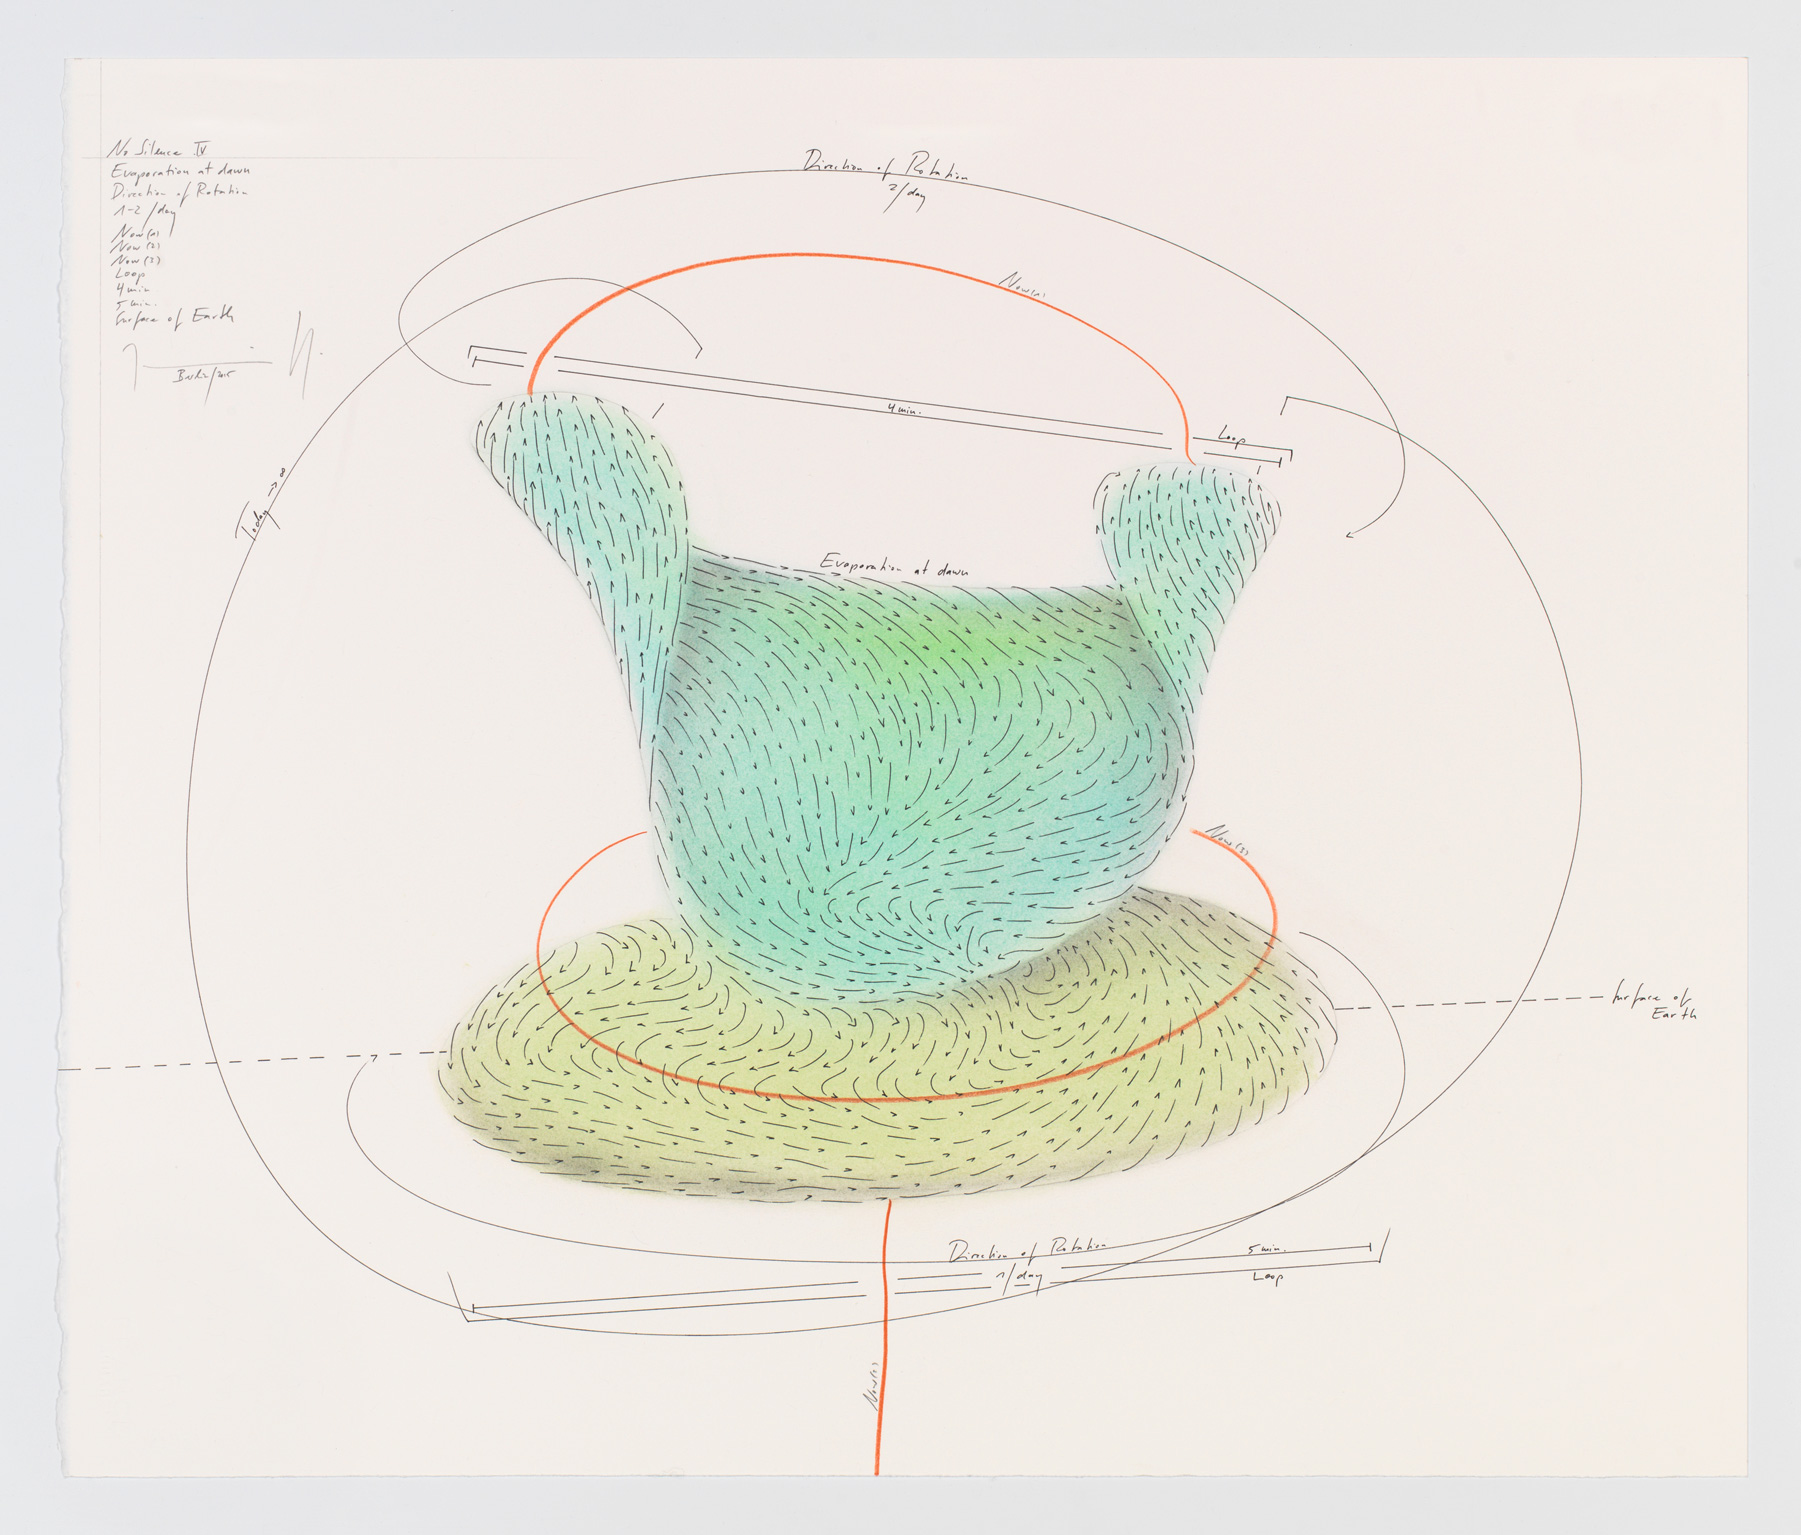 No Silence IV
Evaporation at dawn
Direction of Rotation
1-2 /day
Now (1)
Now (2)
Now (3)
Loop
4 min
5 min.
Surface of Earth
Berlin/2015
Direction of Rotation
2/day
Now (1)
4 min.
Loop
Today → ∞
Evaporation at dawn
Now (3)
Surface of
Earth
Direction of Rotation
1/day
5 min.
Loop
Now